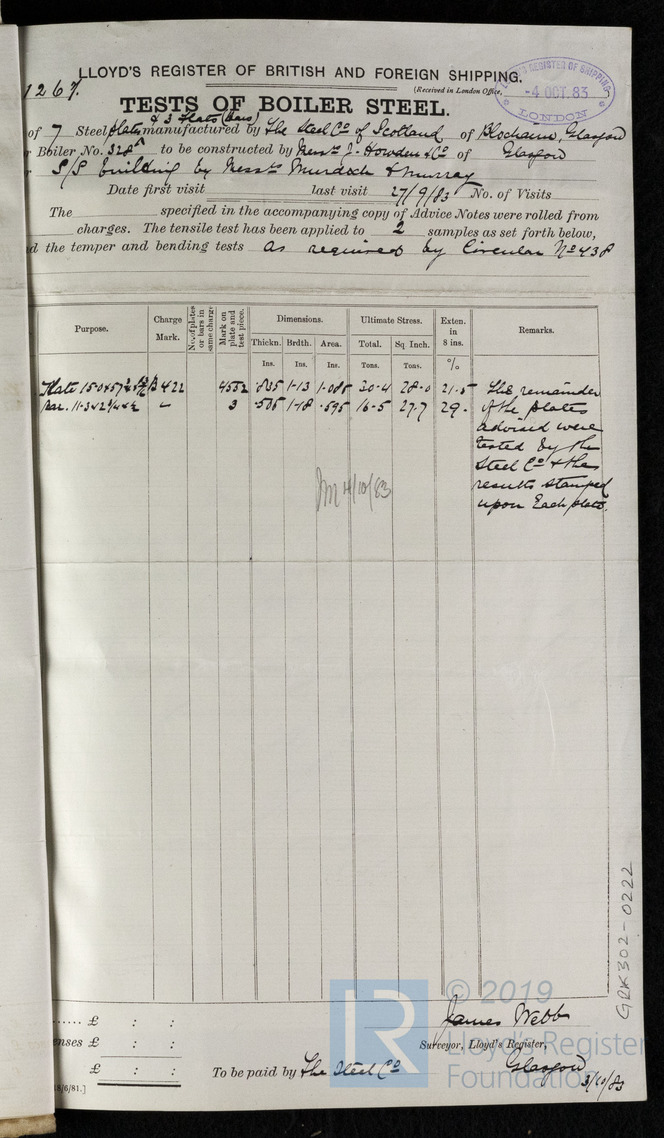 1267.
LLOYD'S REGISTER OF BRITISH AND FOREIGN SHIPPING.
(Received in London Office,
LLOYD'S REGISTER OF SHIPPING
-4 OCT. 83
LONDON
TESTS OF BOILER STEEL.
& 3 Flats (bars)
of 7 Steel plates manufactured by The Steel Co of Scotland of Blochairn, Glasgow
Boiler No. 328A to be constructed by Messrs J. Howden & Co of Glasgow
S/S building by Messrs Murdoch & Murray
Date first visit last visit 27/9/83 No. of Visits
The specified in the accompanying copy of Advice Notes were rolled from
charges. The tensile test has been applied to 2 samples as set forth below,
the temper and bending tests as required by Circular No 438
Purpose.
Charge Mark.
No. of plates or bars in same charge
Mark on plate and test piece.
Dimensions.
Thickn. Brdth. Area.
Ins. Ins. Ins.
Ultimate Stress.
Total. Sq. Inch.
Tons. Tons.
Exten. in 8 ins.
%
Remarks.
Plate 422 4552 .835 1.13 1.085 30.4 28.0 21.5 The remainder
Bar. 3 .505 1.18 .595 16.5 27.7 29. of the plates
advised were
tested by the
Steel Co & the
results stamped
upon Each plate.
4/10/83
GRK302-0222
© 2019
Lloyd's Register
Foundation
LR
James Webb
Surveyor, Lloyd's Register,
Glasgow
3/10/83
£ : :
enses £ : :
£ : :
To be paid by The Steel Co
8/6/81.]